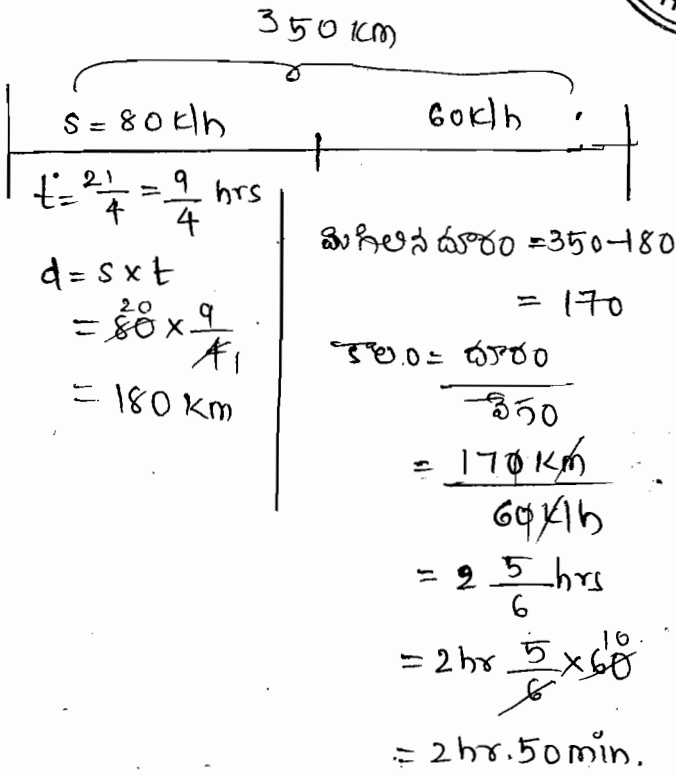 350 km
s = 80 k/h 60k/h
t = 2 1/4 = 9/4 hrs
d = s x t
= 80 20 x 9/4 1
= 180 km
మిగిలిన దూరం = 350-180
= 170
కాలం = దూరం / వేగం
= 170 km / 60 k/h
= 2 5/6 hrs
= 2 hr 5/6 x 60 10
= 2 hr. 50 min.